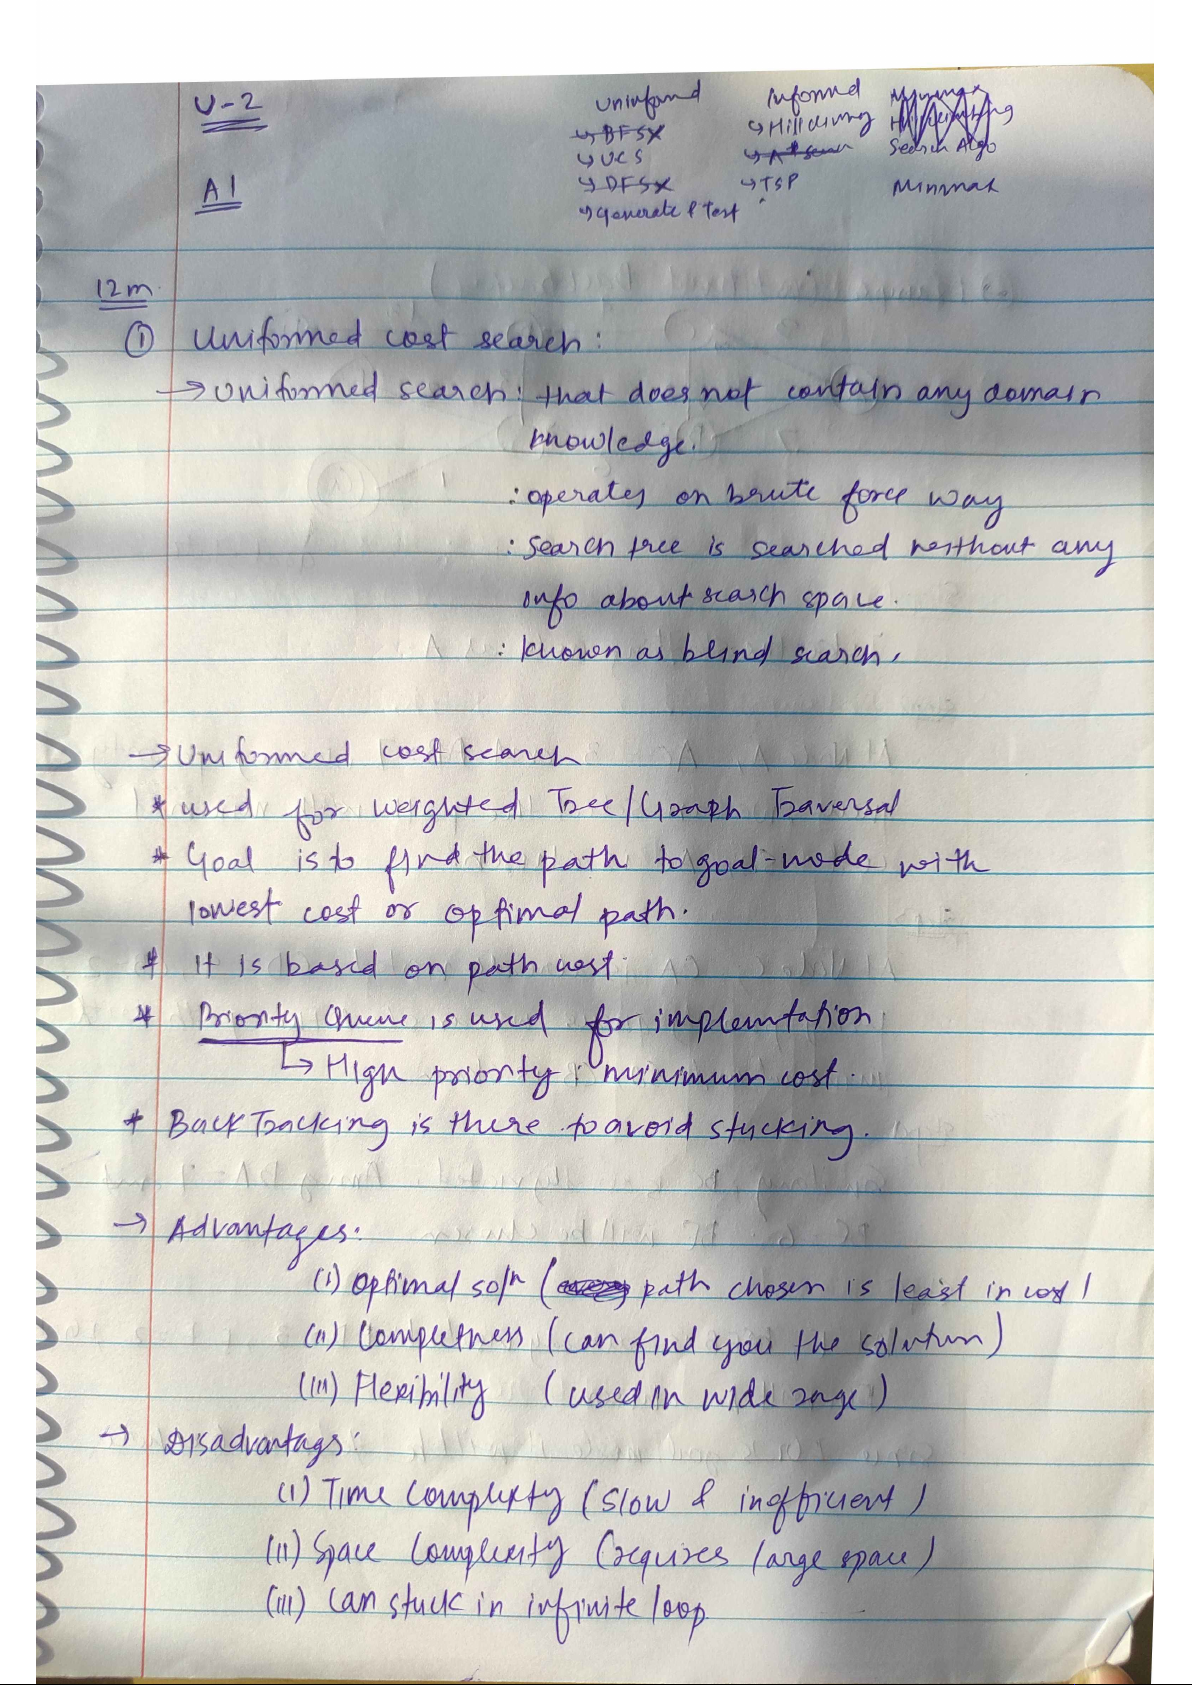 U-2
AI
Uninformed
↳ BFS x
↳ UCS
↳ DFS x
↳ Generate & Test
Informed
↳ Hill climbing
↳ A* search
↳ TSP
Minimax
Hill climbing
Search Algo
Minimax
12m.
① Uniformed cost search:
→ Uniformed search: that does not contain any domain
knowledge.
: operates on brute force way
: Search tree is searched without any
info about search space.
: known as blind search.
→ Uniformed cost search
* used for weighted Tree/Graph Traversal
* Goal is to find the path to goal-node with
lowest cost or optimal path.
* It is based on path cost.
* Priority Queue is used for implemtation
↳ High priority : minimum cost.
* BackTracking is there to avoid stucking.
→ Advantages:
(i) Optimal solⁿ ( path chosen is least in cost)
(ii) Completness (can find you the solution)
(iii) Flexibility (used in wide range)
→ Disadvantags:
(i) Time Complexity (Slow & inefficient)
(ii) Space Complexity (requires large space)
(iii) Can stuck in infinite loop